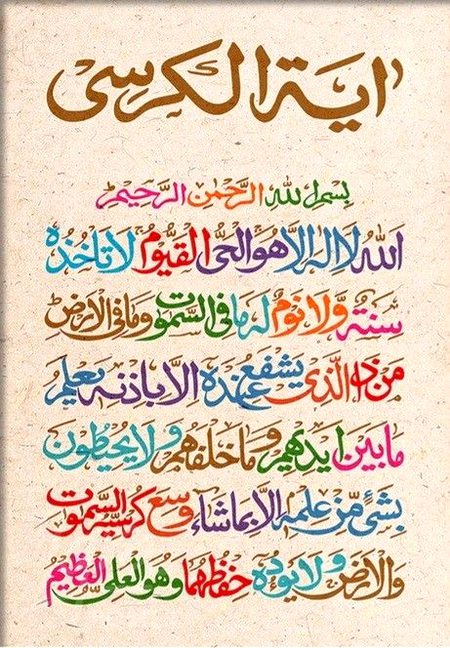 اية الكرسى
بسم الله الرحمن الرحيم
الله لا اله الا هو الحي القيوم لا تاخذه
سنة ولا نوم له ما فى السموت وما فى الارض
من ذا الذى يشفع عنده الا باذنه يعلم
ما بين ايديهم وما خلفهم ولا يحيطون
بشئ من علمه الا بما شاء وسع كرسيه السموت
والارض ولا يوده حفظهما وهو العلى العظيم